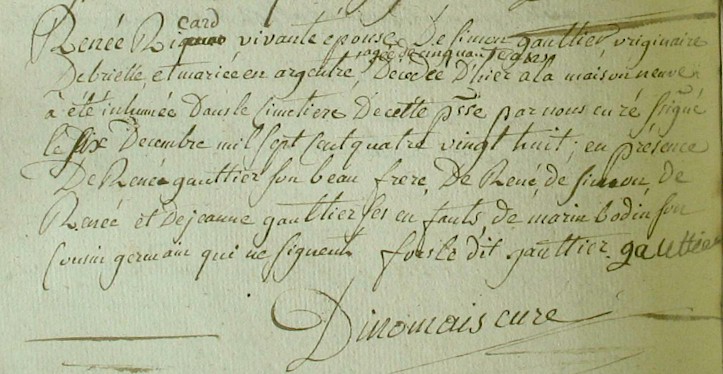 card
Renée Ri vivante epouse De Simon gaultier originaire
agée de cinquante ans
De brielle et mariée en argentré, Decedée D'hier a la maison neuve
à été inhumée Dans le Cimetiere De cette psse par nous curé ssigné
le six Decembre mil sept cent quatre vingt huit; en présence
De René gaultier son beau frere, De René, de simon, de
Renée et De jeanne gaultier ses enfants, de marin bodin son
Cousin germain qui ne signent fors le dit gaultier. gaultier
Dinomais curé